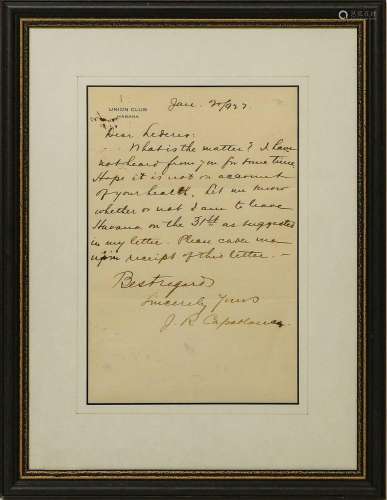 UNION CLUB
HABANA
Jan. 20/927
Dear Lederer:
What is the matter? I have
not heard from you for some time
Hope it is not on account
of your health. Let me know
whether or not I am to leave
Havana on the 31st as suggested
in my letter. Please cable me
upon receipt of this letter. —
Best regards
Sincerely Yours
J. R. Capablanca